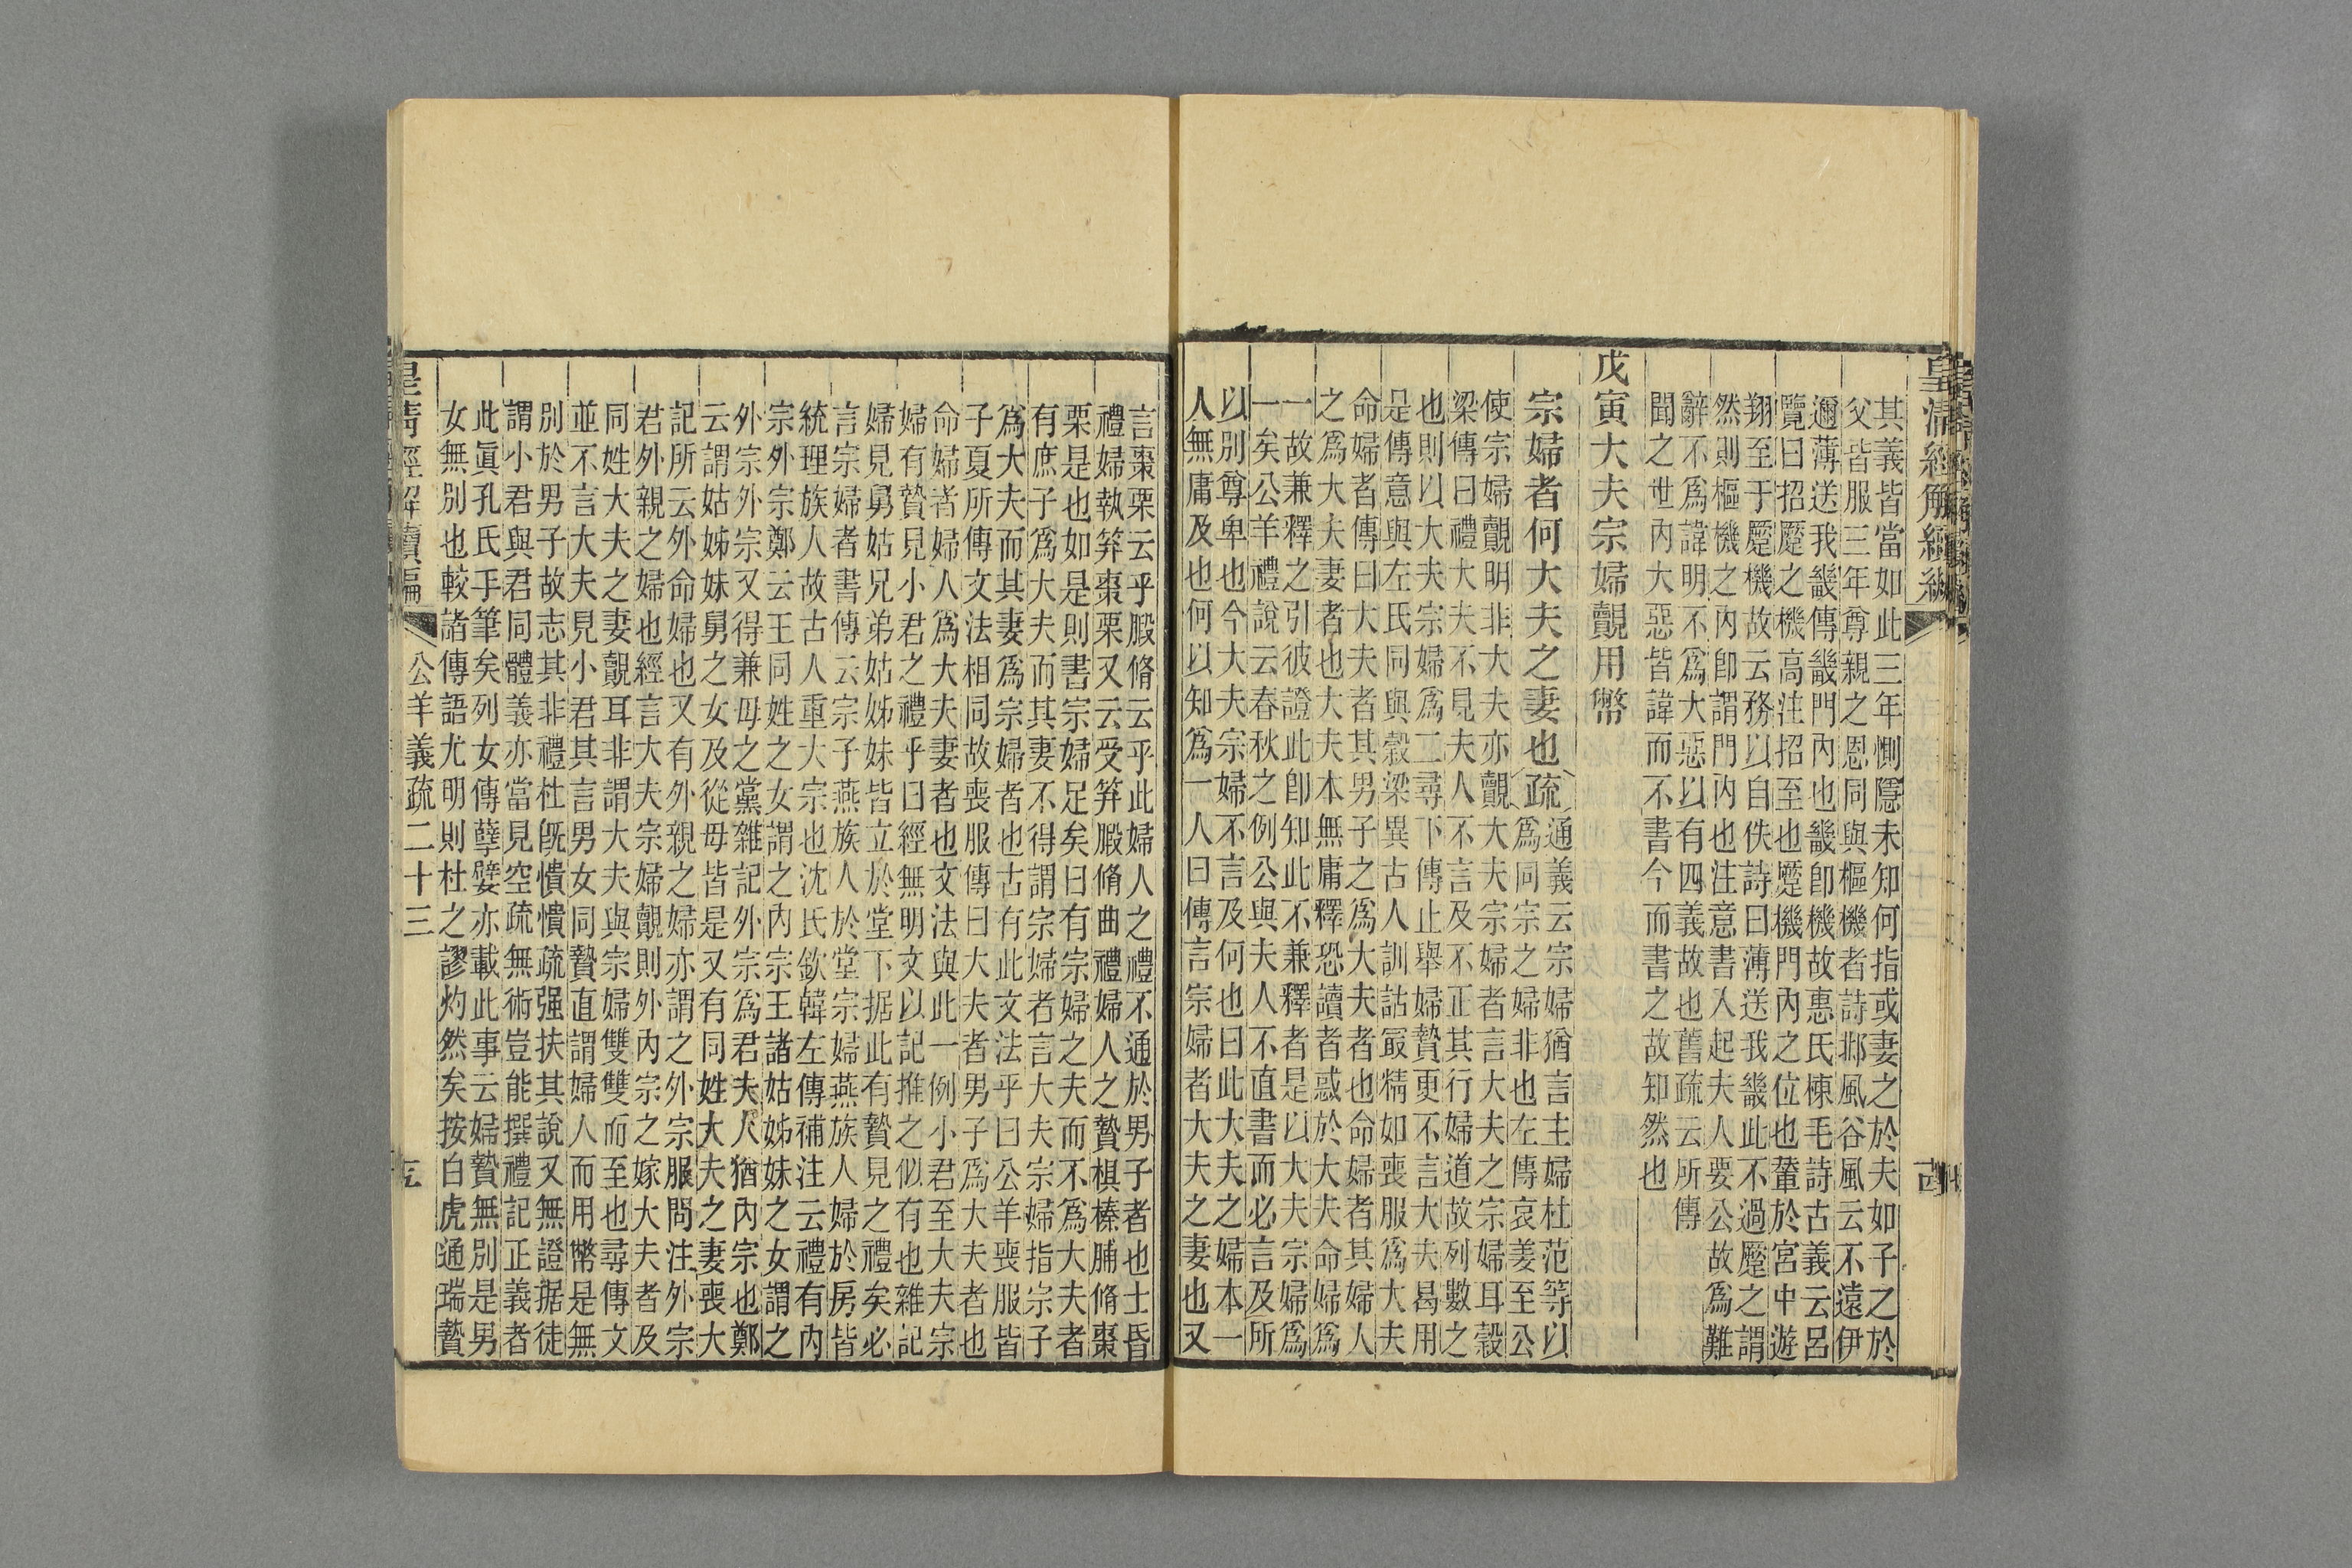 皇清經解續編
其義皆當如此三年惻隱未知何指或妻之於夫如子之於
父皆服三年尊親之恩同與樞機者詩邶風谷風云不遠伊
邇薄送我畿傳畿門內也畿卽機故惠氏棟毛詩古義云呂
覽曰招蹷之機高注招至也蹷機門內之位也輦於宮中遊
翔至于蹷機故云務以自佚詩曰薄送我畿此不過蹷之謂
然則樞機之內卽謂門內也注意書入起夫人要公故爲難
辭不爲諱明不爲大惡以有四義故也舊疏云所傳
聞之世內大惡皆諱而不書今而書之故知然也
戊寅大夫宗婦覿用幣
宗婦者何大夫之妻也疏
通義云宗婦猶言主婦杜范等以
爲同宗之婦非也左傳哀姜至公
使宗婦覿明非大夫亦覿大夫宗婦者言大夫之宗婦耳穀
梁傳曰禮大夫不見夫人不言及不正其行婦道故列數之
也則以大夫宗婦爲二尋下傳止舉婦贄更不言大夫曷用
是傳意與左氏同與穀梁異古人訓詁冣精如喪服爲大夫
命婦者傳曰大夫者其男子之爲大夫者也命婦者其婦人
之爲大夫妻者也大夫本無庸釋恐讀者惑於大夫命婦爲
一故兼釋之引彼證此卽知此不兼釋者是以大夫宗婦爲
一矣公羊禮說云春秋之例公與夫人不直書而必言及所
以別尊卑也今大夫宗婦不言及何也曰此大夫之婦本一
人無庸及也何以知爲一人曰傳言宗婦者大夫之妻也又
言棗栗云乎腶脩云乎此婦人之禮不通於男子者也士昏
禮婦執笲棗栗又云受笲腶脩曲禮婦人之贄椇榛脯脩棗
栗是也如是則書宗婦足矣曰有宗婦之夫而不爲大夫者
有庶子爲大夫而其妻不得謂宗婦者言大夫宗婦指宗子
爲大夫而其妻爲宗婦者也古有此文法乎曰公羊喪服皆
子夏所傳文法相同故喪服傳曰大夫者男子爲大夫者也
命婦者婦人爲大夫妻者也文法與此一例小君至大夫宗
婦有贄見小君之禮乎曰經無明文以記推之似有也雜記
婦見舅姑兄弟姑姊妹皆立於堂下据此有贄見之禮矣必
言宗婦者書傳云宗子燕族人於堂宗婦燕族人婦於房皆
統理族人故古人重大宗也沈氏欽韓左傳補注云禮有內
宗外宗鄭云王同姓之女謂之內宗王諸姑姊妹之女謂之
外宗外宗又得兼毋之黨雜記外宗爲君夫人猶內宗也鄭
云謂姑姊妹舅之女及從毋皆是又有同姓大夫之妻喪大
記所云外命婦也又有外親之婦亦謂之外宗服問注外宗
君外親之婦也經言大夫宗婦覿則外內宗之嫁大夫者及
同姓大夫之妻覿耳非謂大夫與宗婦雙雙而至也尋傳文
並不言大夫見小君其言男女同贄直謂婦人而用幣是無
別於男子故志其非禮杜旣憒憒疏强扶其說又無證据徒
謂小君與君同體義亦當見空疏無術豈能撰禮記正義者
此眞孔氏手筆矣列女傳孽嬖亦載此事云婦贄無別是男
女無別也較諸傳語尤明則杜之謬灼然矣按白虎通瑞贄
皇清經解續編
公羊義疏二十三